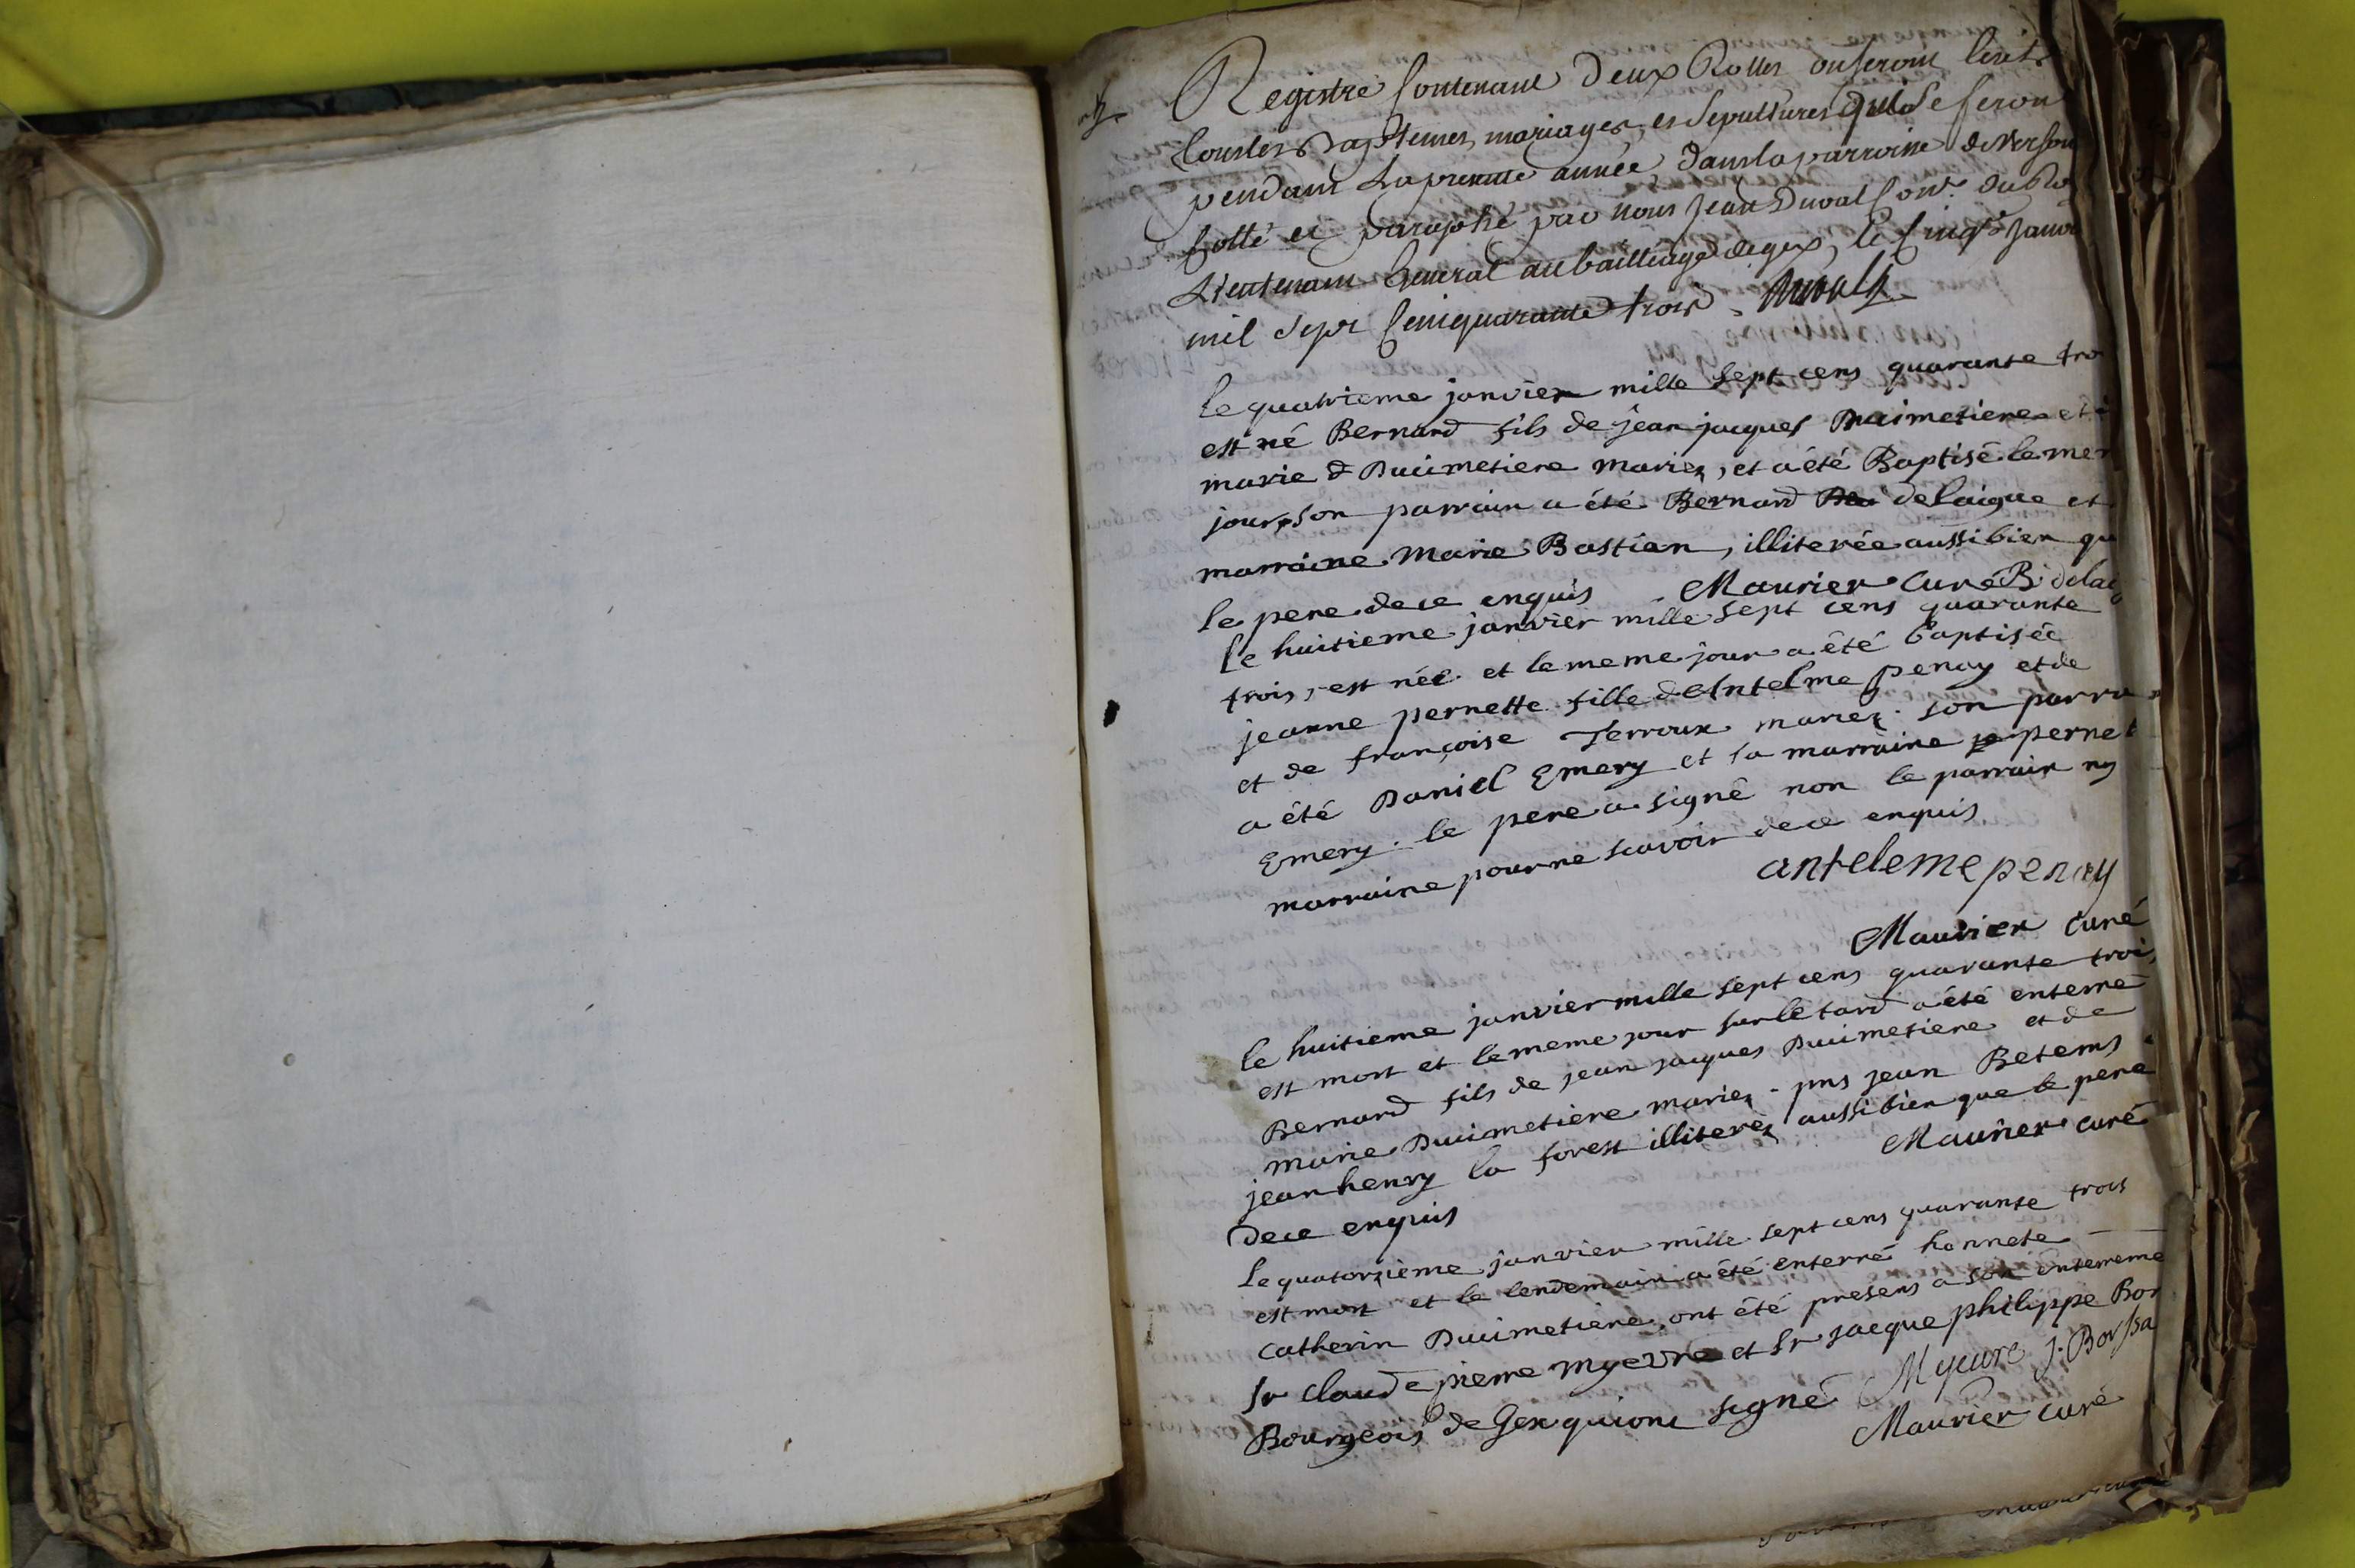 Registre Contenant deux Rolles ou seront
tous les Baptemes, mariages, et Sepultures qui se feron
pendant La presente année, dans la parroisse de Verson
Cotté et paraphé par nous Jean Duval Conr. du Roy
Lieutenant General au bailliage de gex, le Cinqe Janvi
mil Sept Cent quarante trois. Duval
le quatrieme janvier mille sept cens quarante tro
est né Bernard fils de jean jacques Duimetiere et
marie Duimetiere mariez, et a été Baptisé le mem
jour, son parrain a été Bernard delaigue et
marraine Marie Bastian, illiterée aussi bien qu
le pere de ce enquis Maurier Curé B. delaig
Le huitieme janvier mille sept cens quarante
trois, est née et le meme jour a été baptisée
jeanne pernette fille d'Antelme penay et de
et de françoise Terroux mariez. son parra
a été Daniel Emery et sa marraine pernet
Emery. le pere a signé non le parrain ny
marraine pour ne scavoir de ce enquis
anteleme penay
Maurier Curé
le huitieme janvier mille sept cens quarante trois
est mort et le meme jour sur le tard a été enterré
Bernard fils de jean jacques Duimetiere et de
marie Duimetiere mariez. pns jean Betems
jean henry la forest illiterez aussi bien que le pere
de ce enquis Maurier curé
Le quatorzieme janvier mille sept cens quarante trois
est mort et le lendemain a été enterré honnete
catherin Duimetiere, ont été presens a son entereme
sr claude pierre Myevre et sr jacque philippe Bor
Bourgeois de Gex qui ont signé Myevre J. Borssa
Maurier curé